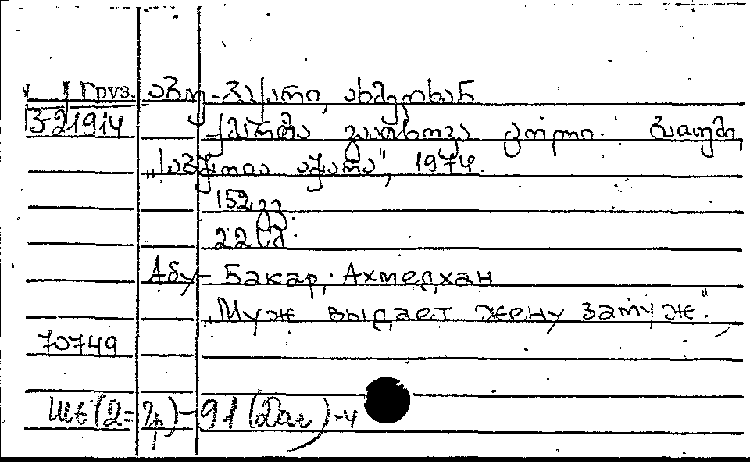 Груз. აბუ-ბაქარი, ახმედხან
3-21914 ქმარმა გაათხოვა ცოლი. ბათუმი,
„საბჭოთა აჭარა", 1974.
152 გვ.
22 სმ.
Абу-Бакар, Ахмедхан
„Муж выдает жену замуж".
70749
Шб(2=Гр)-91(Даг)-4